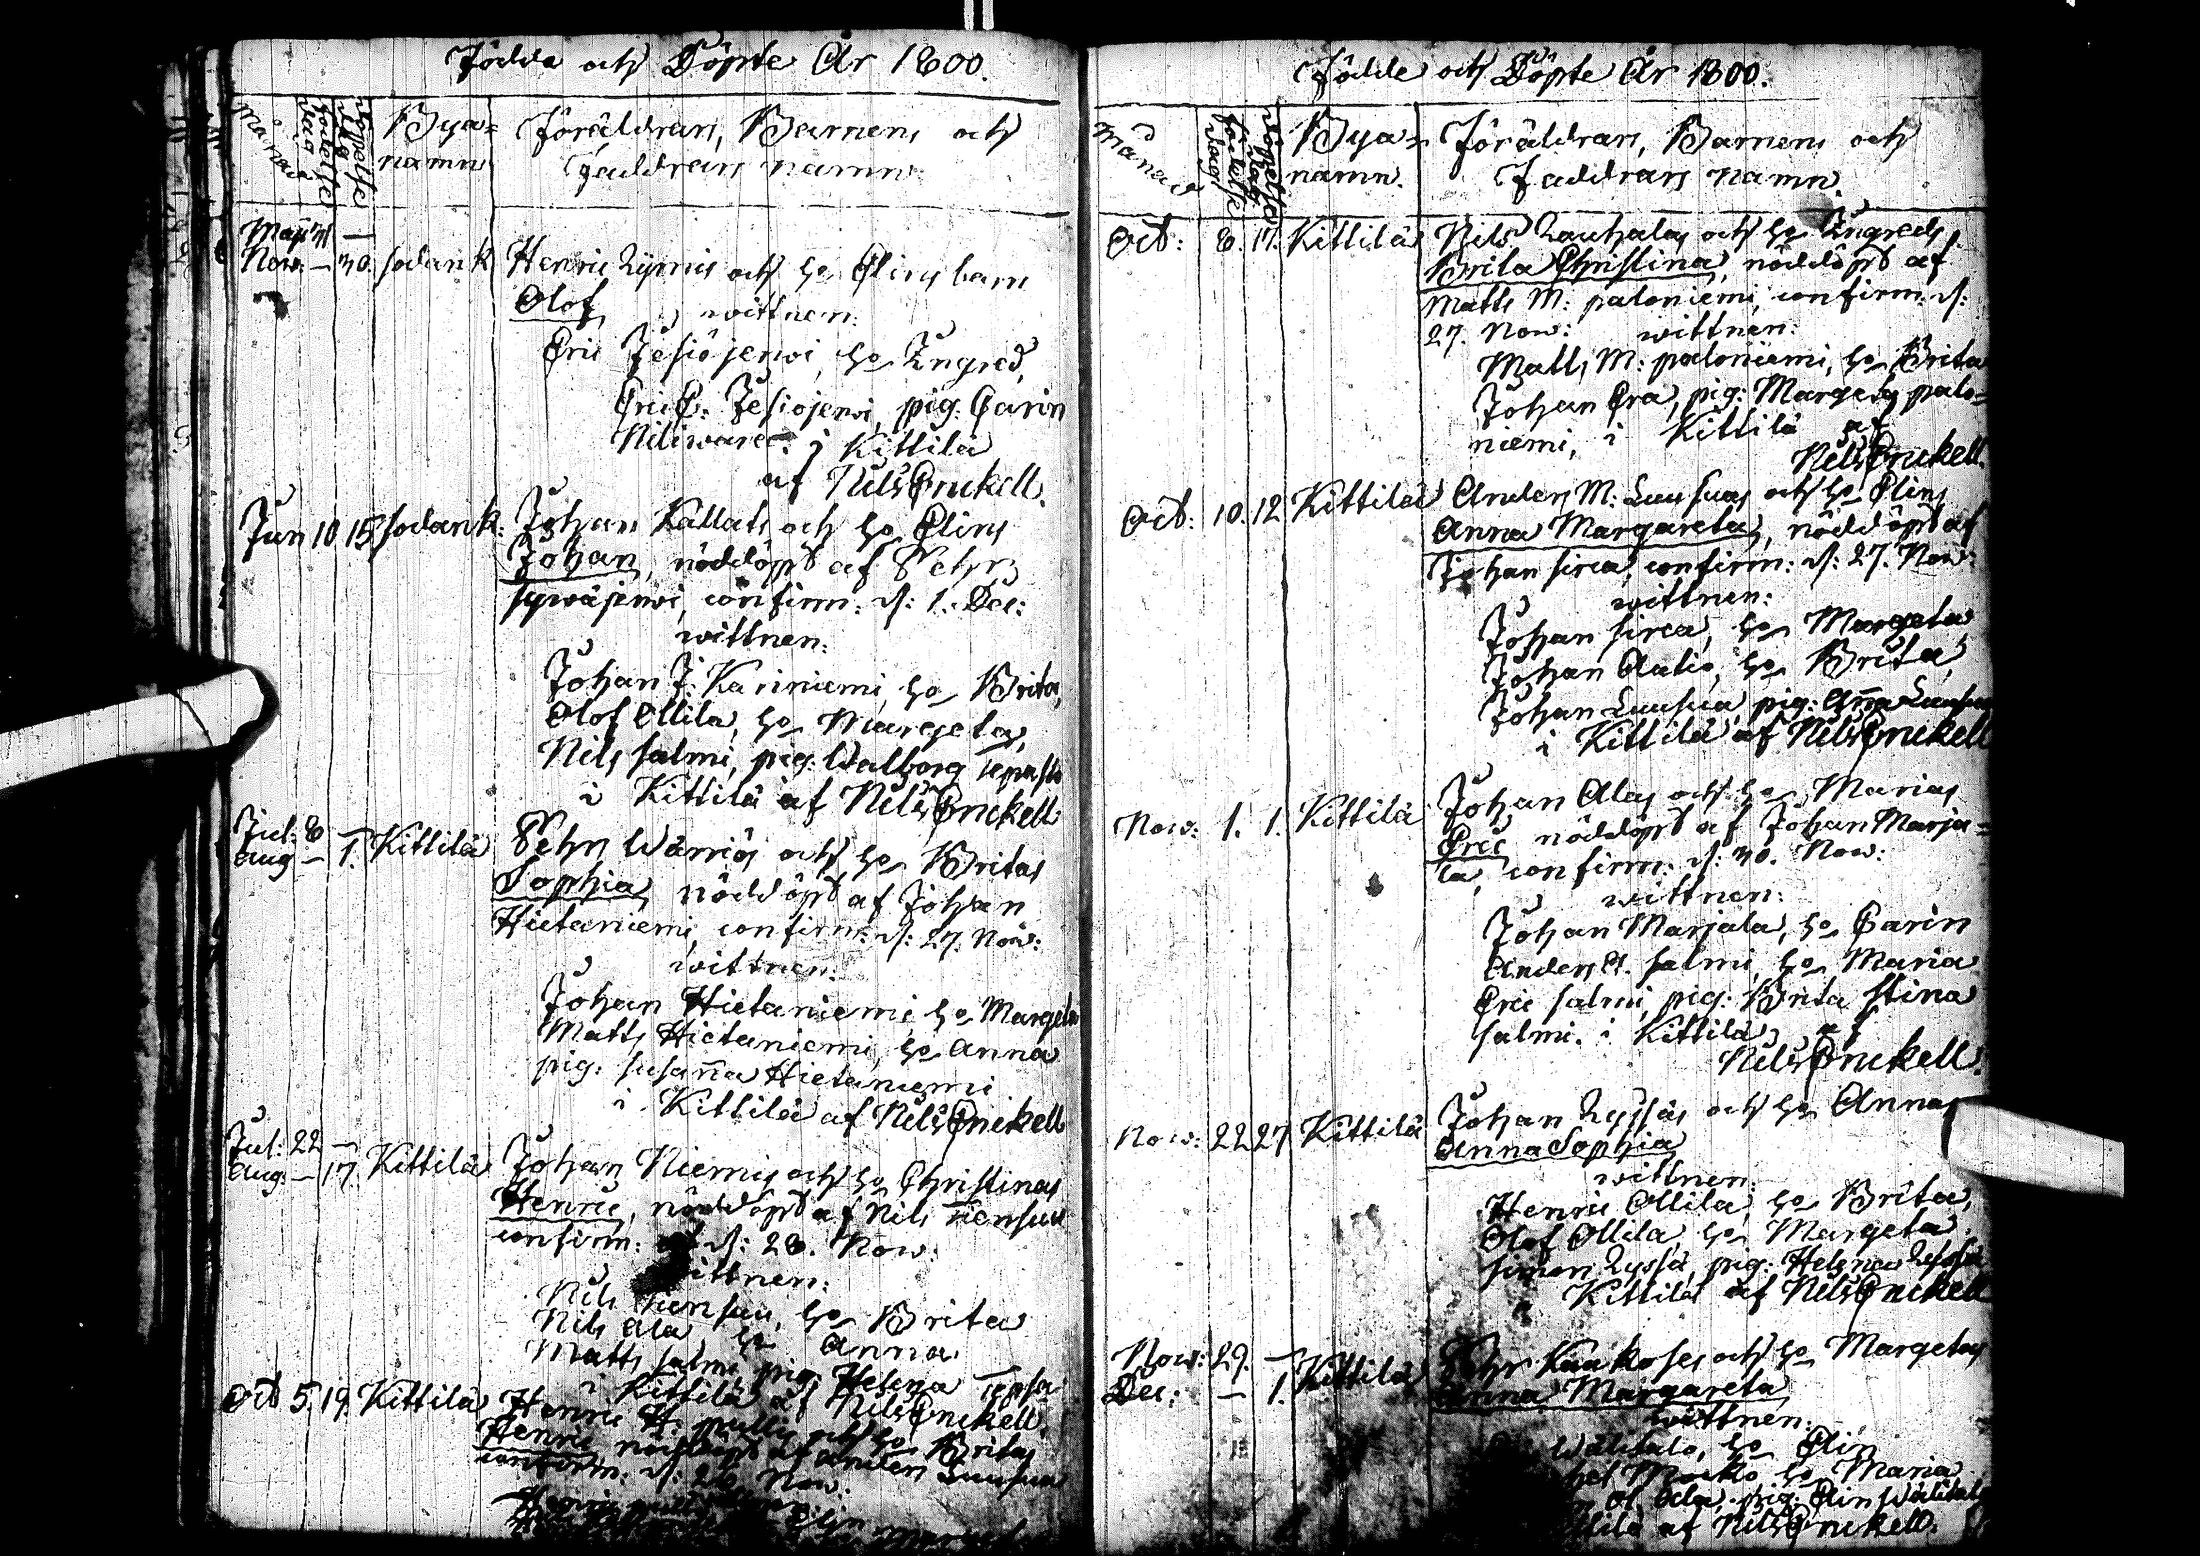 Födda och Döpte År 1800.
Månad
Födelse dag
Döpelse dag
Bya-
namn
Föräldrars, Barnens och
Faddrars namn.
Maji 31 —
Nov: — 30. Sodank
Henric Lymis och ho Elins barn
Olof, wittnen:
Eric Jesiöjerwi, ho Ingred,
Eric E: Jesiojerwi, pig: Carin
Niliware. i Kittilä
af Nils Enckell.
Jun 10 15 Sodank:
Johan Kallats och ho Elins
Johan, nöddöpt af Pehr
Sywäjerwi, confirm: d: 1. Dec:
wittnen:
Johan J: Kariniemi, ho Brita,
Olof Ollila, ho Margeta,
Nils Salmi, pig: Walborg
i Kittilä af Nils Enckell
Jul: 8 —
Aug — 1. Kittilä
Pehr Wärriös och ho Britas
Sophia, nöddöpt af Johan
Hietaniemi, confirm: d: 27. Nov:
wittnen:
Johan Hietaniemi, ho Margeta
Matts Hietaniemi, ho Anna
pig: Susaña Hietaniemi
i Kittilä af Nils Enckell
Jul: 22 —
Aug: — 17. Kittilä
Johan Niemis och ho Christinas
Henric, nöddöpt af Nils
confirm: d: 28. Nov:
wittnen:
Nils ho Brita
Nils Ala ho Anna
Matts Salmi pig: Helena
i Kittilä af Nils Enckell.
Oct 5. 19. Kittilä
Henric H: och ho Britas
Henric nöddöpt af Anders Luusua
confirm: d: 26 Nov:
Födde och Döpte År 1800.
Månad
Födelse dag
Döpelse dag
Bya-
namn.
Föräldrars, Barnens och
Faddrars namn.
Oct: 8. 17. Kittilä
Nils Lauhalas och ho Ingreds
Brita Christina, nöddöpt af
Matts M: paloniemi, confirm: d:
27. Nov: wittnen:
Matts M: paloniemi, ho Brita
Johan Era, pig: Margeta palo-
niemi, i Kittilä af
Nils Enckell.
Oct: 10. 12 Kittilä
Anders M: Luusuas och ho Elins
Anna Margareta, nöddöpt af
Johan Sirca, confirm: d: 27. Nov:
wittnen:
Johan Sirca, ho Margeta
Johan Autio, ho Brita,
Johan Luusua, pig: Aña Luusua
i Kittilä af Nils Enckell
Nov: 1. 1. Kittilä
Johan Alas och ho Marias
Eric nöddöpt af Johan Marja-
la, confirm: d: 30. Nov:
wittnen:
Johan Marjala, ho Carin
Anders A. Salmi, ho Maria
Eric Salmi, pig: Brita Stina
Salmi. i Kittilä af
Nils Enckell.
Nov: 22 27 Kittilä
Johan Lyssäs och ho Annas
Anna Sophia
wittnen:
Henric Ollila, ho Brita,
Olof Ollila ho Margeta
Simon Lyssä, pig: Helena
i Kittilä af Nils Enckell
Nov: 29. —
Dec: — 1. Kittilä
Pehr Kaukoses och ho Margetas
Anna Margareta
wittnen:
Wälitalo, ho Elin
ho Maria
pig: Elin Wälitalo
af Nils Enckell.